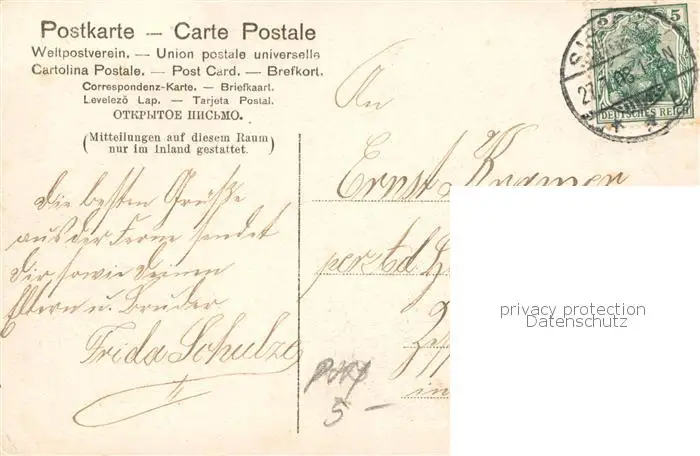 Postkarte — Carte Postale
Weltpostverein. — Union postale universelle
Cartolina Postale. — Post Card. — Brefkort.
Correspondenz-Karte. — Briefkaart.
Levelező Lap. — Tarjeta Postal.
ОТКРЫТОЕ ПИСЬМО.
(Mitteilungen auf diesem Raum
nur im Inland gestattet.)
die besten Grüße
aus der Ferne sendet
dir sowie deinen
Eltern u. Bruder
Frida Schulze
5
DEUTSCHES REICH
An
Ernst Kramer
in
privacy protection
Datenschutz
5 —